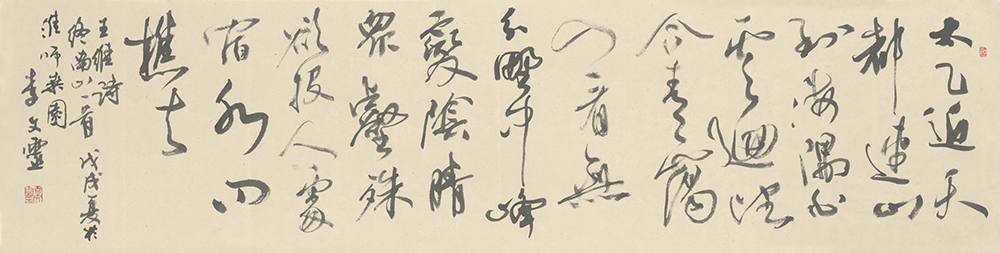 太乙近天
都連山
到海隅白
雲迴望
合青靄
入看無
分野中峰
變陰晴
眾壑殊
欲投人處
宿水问
樵夫
王維詩
終南山一首 戊戌夏於
淮師桼園
李文靈